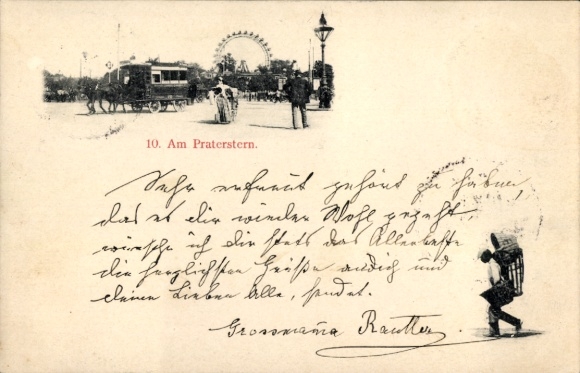 10. Am Praterstern.
Sehr erfreut gehört zu haben,
das es dir wieder Wohl gegeht,
wünsche ich Dir stets das Allerbeste
die herzlichsten Grüße an dich und
deine Lieben Alle, sendet.
Grossmama Rautter